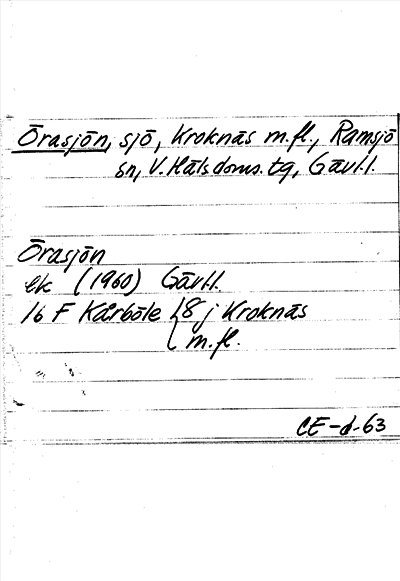 Örasjön, sjö, Kroknäs m.fl., Ramsjö
sn, V. Häls doms. tg, Gävl.l.
Örasjön
ek (1960) Gävl.l.
16 F Kårböle {8 j Kroknäs
m.fl.
CE-d-63